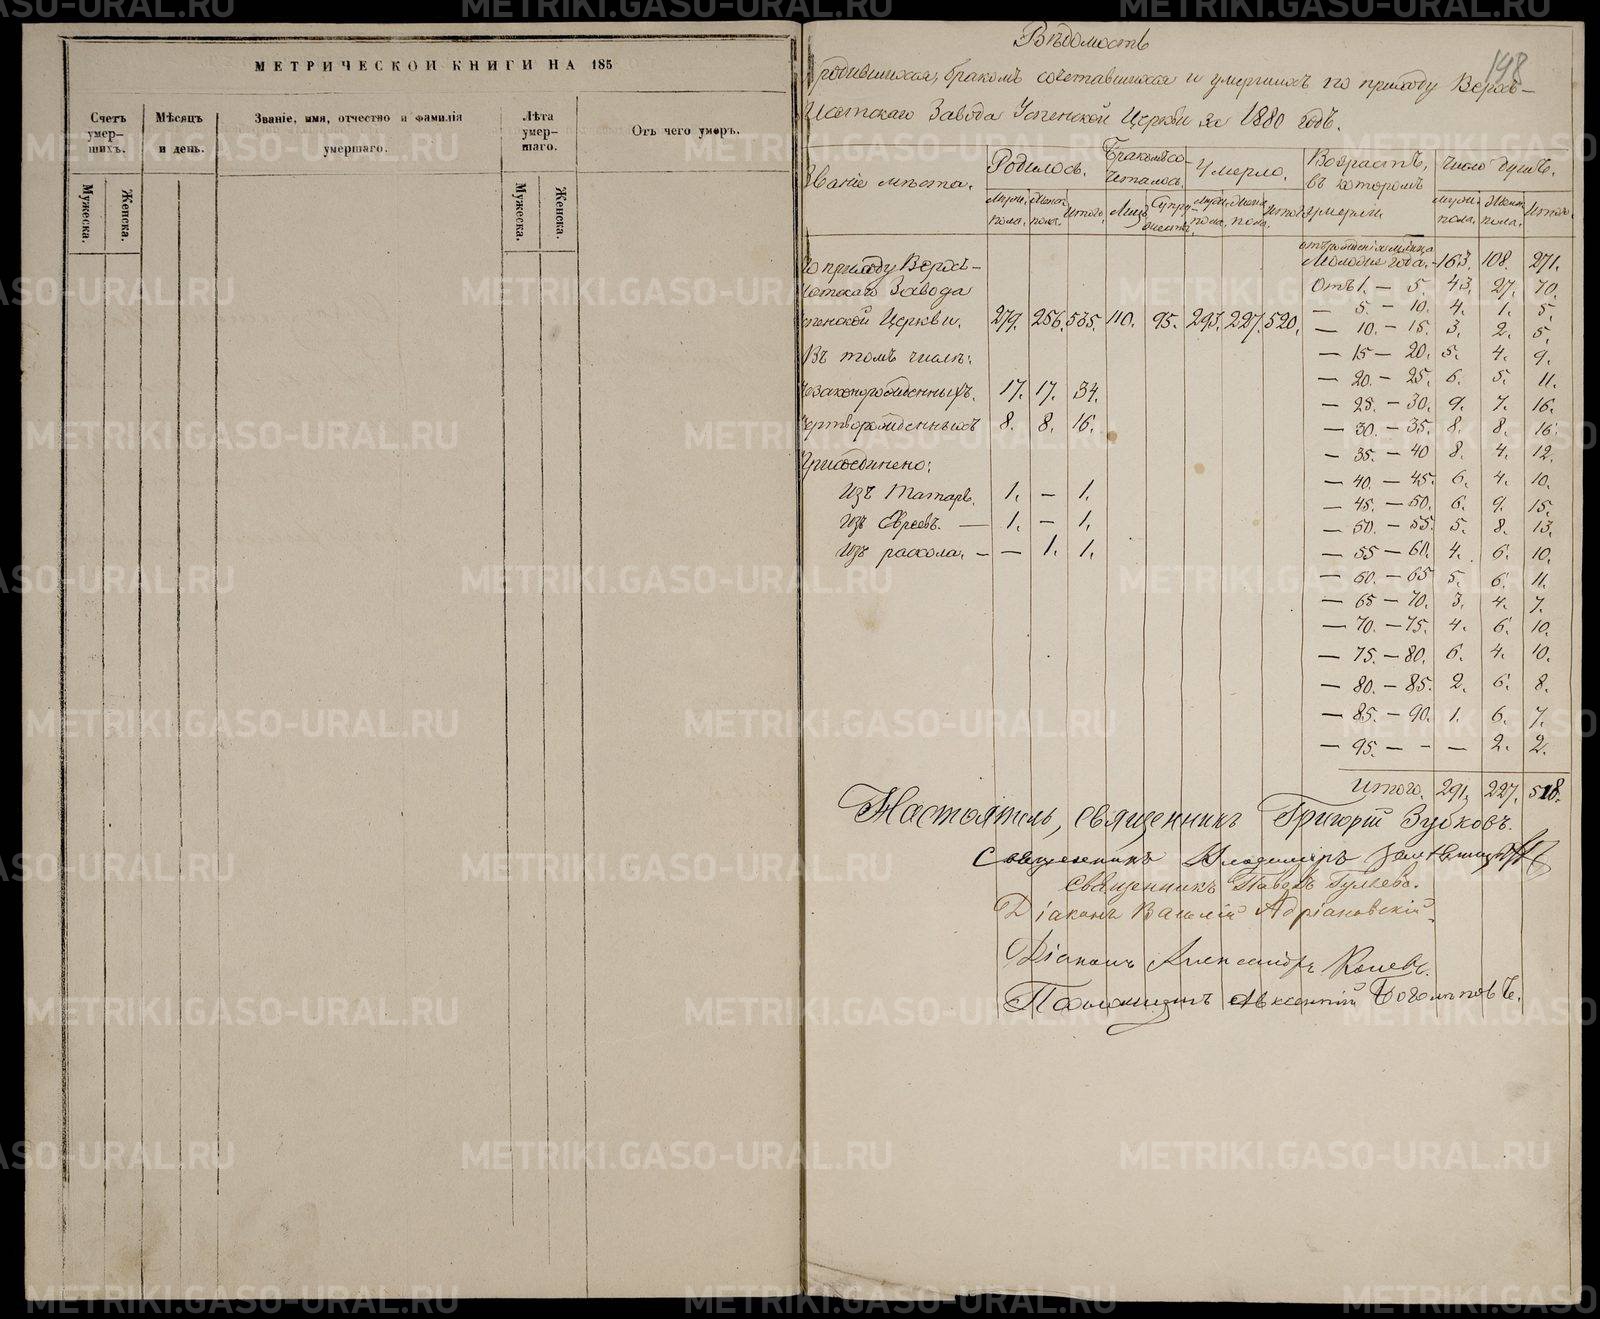 МЕТРИЧЕСКОЙ КНИГИ НА 185
Счетъ умер-шихъ.
Мужеска.
Женска.
Мѣсяцъ и день.
Званіе, имя, отчество и фамилія умершаго.
Лѣта умер-шаго.
Мужеска.
Женска.
Отъ чего умеръ.
198
Вѣдомость
родившихся, бракомъ сочетавшихся и умершихъ по приходу Верхъ-
Исетскаго Завода Успенской Церкви за 1880 годъ.
Званіе мѣста. Родилось. Бракомъ со-четалось. Умерло. Возрастъ, въ которомъ умерли Число душъ.
Муж. пола. Женск. пола. Итого. Лицъ Супру- Муж. пола. Женск. пола. Итого Муж. пола. Женск. пола. Итого.
По приходу Верхъ-
Исетскаго Завода
Успенской Церкви. 279. 256. 535. 110. 95. 293. 227. 520.
Въ томъ числѣ:
Незаконорожденныхъ. 17. 17. 34.
Мертворожденныхъ 8. 8. 16.
Присоединено:
Изъ Татаръ. 1. — 1.
Изъ Евреевъ. — 1. — 1.
Изъ раскола. — — 1. 1.
отъ рожденія мѣсяца
Моложе года. - 163. 108. 271.
Отъ 1. — 5. 43. 27. 70.
— 5. — 10. 4. 1. 5.
— 10. — 15. 3. 2. 5.
— 15 — 20. 5. 4. 9.
— 20. — 25. 6. 5. 11.
— 25. — 30. 9. 7. 16.
— 30. — 35. 8. 8. 16.
— 35. — 40 8. 4. 12.
— 40. — 45. 6. 4. 10.
— 45. — 50. 6. 9. 15.
— 50. — 55. 5. 8. 13.
— 55 — 60. 4. 6. 10.
— 60. — 65 5. 6. 11.
— 65 — 70. 3. 4. 7.
— 70. — 75. 4. 6. 10.
— 75. — 80. 6. 4. 10.
— 80. — 85. 2. 6. 8.
— 85. — 90. 1. 6. 7.
— 95. — - — 2. 2.
Итого. 291. 227. 518.
Настоятель, священникъ Григорій Зубковъ.
Священникъ Владиміръ
Священникъ Павелъ Гуляевъ.
Діаконъ Василій Адріановскій.
Діаконъ Александръ Коневъ.
Псаломщикъ Авксентій Боголѣповъ.
METRIKI.GASO-URAL.RU